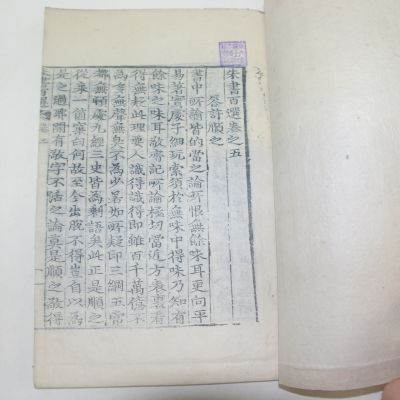 朱書百選卷之五
答許順之
書中所論皆的當之論所恨無餘味耳更向平
易著實處子細玩索須於無味中得味乃知有
餘味之味耳敬齋記所論極切當近方表裏看
得無疑此理要人識得識得即雖百千萬億不
為多無聲無臭不為少若如所疑即三綱五常
都無頓處九經三史皆為剩語矣此正是順之
從來一箇窠臼何故至今出脫不得豈自以為
是之過耶聞有敬字不活之論莫是順之敬得
朱書百選